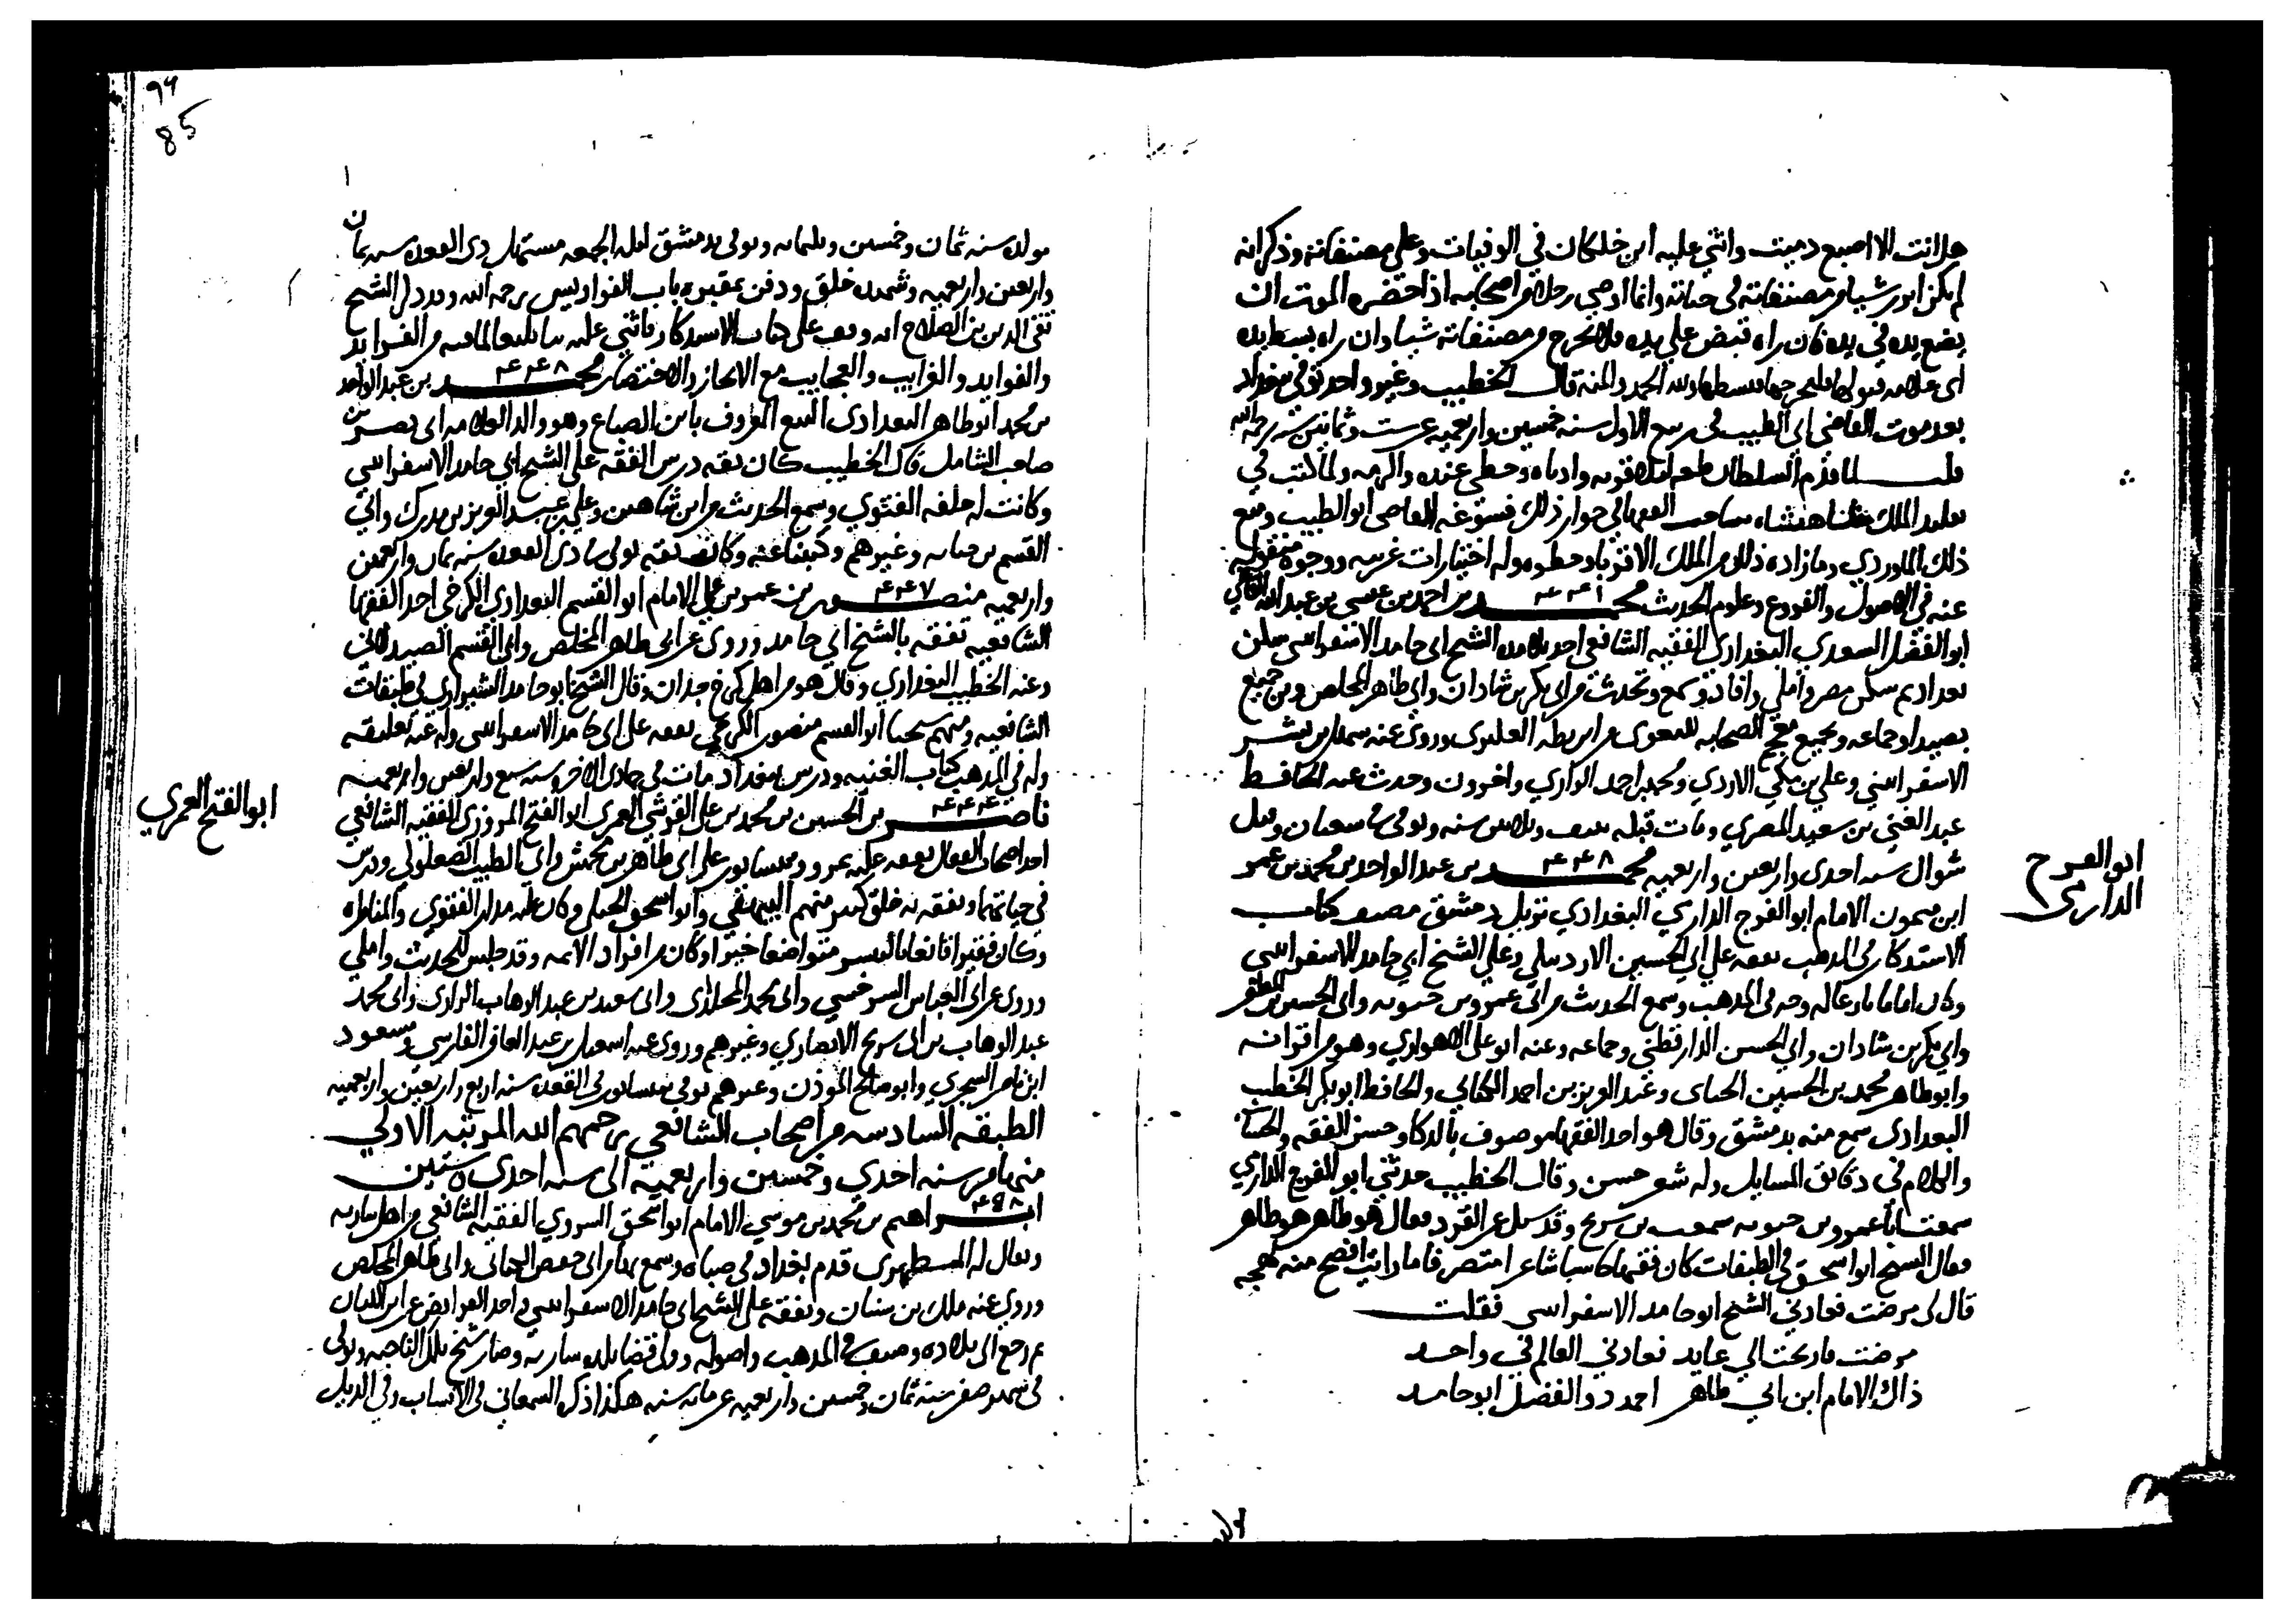 هل انت الا اصبع دميت واثنى عليه ابن خلكان في الوفيات وعلى مصنفاته وذكر انه
لم يكن ابرز شيا من مصنفاته في حياته وانما اوصى رجلا من اصحابه اذا حضره الموت ان
يضع يده في يده فان راه قبض على يده فلا يخرج من مصنفاته شيا وان راه بسط يده
اى علامه قبولها فليخرجها فبسطها ولله الحمد والمنة قال الخطيب وغير واحد توفي ببغداد
بعد موت القاضي ابي الطيب في ربيع الاول سنه خمسين واربعميه عن ست وثمانين سنه رحمه الله
قلت لما قدم السلطان وادناه وحظى عنده واكرمه ولما كتب في
الملك شاهنشاه الفقها في جواز ذلك فسوغه القاضى ابو الطيب ومنع
ذلك الماوردي وما زاده ذلك من الملك الا قربا وحظوه وله اختيارات غريبه ووجوه منقوله
عنه في الاصول والفروع وعلوم الحديث ٤٤١ محمد بن احمد بن عيسى بن عبد الله القاضي
ابو الفضل السعدي البغدادي الفقيه الشافعي احد تلامده الشيخ ابى حامد الاسفراسى
سكن مصر واملى وافاد وسمع وتحدث من ابى بكر بن شادان وابي طاهر المخلص وبن جميع
بصيدا وجماعه وبجميع معجم الصحابه للبغوى من ابن بطه العكبرى وروى عنه سهل بن بشر
الاسفراينى وعلي بن مكي الازدي ومحمد بن احمد الرازي واخرون وحدث عنه الحافظ
عبد الغني بن سعيد المصري ومات قبله بنيف وثلاثين سنه وتوفى في شعبان وقيل
شوال سنه احدى واربعين واربعميه ٤٤٨ محمد بن عبد الواحد بن محمد بن عمر
ابن ميمون الامام ابو الفرج الدارمي البغدادي نزيل دمشق مصنف كتاب
الاستدكار في المدهب تفقه على ابي الحسين الاردبيلي وعلى الشيخ ابي حامد الاسفراسى
وكان اماما بارعا له وجه في المدهب وسمع الحديث من ابى عمرو بن حيويه وابى الحسين بن المظفر
وابي بكر بن شادان وابي الحسن الدارقطني وجماعه وعنه ابو على الاهوازي وهو من اقرانه
وابو طاهر محمد بن الحسين الحناى وعبد العزيز بن احمد الكتاني والحافظ ابو بكر الخطيب
البغدادى سمع منه بدمشق وقال هو احد الفقها موصوف بالدكا وحسن الفقه والحساب
والكلام في دقائق المسايل وله شعر حسن وقال الخطيب حدثني ابو الفرج الدارمي
سمعت ابا عمرو بن حيويه سمعت بن سريج وقد سيل عن القرد فقال هو طاهر هو طاهر
وقال الشيخ ابو اسحق في الطبقات كان فقيها حاسبا شاعرا متصرفا ما رايت افصح منه لهجه
قال لي مرضت فعادني الشيخ ابو حامد الاسفراسى فقلت
مرضت فارتحت الى عايد فعادني العالم في واحد
ذاك الامام ابن ابي طاهر احمد ذو الفضل ابو حامد
ابو الفرج
الدارمى
94
85
مولده سنه ثمان وخمسين وثلثمايه وتوفى بدمشق ليله الجمعه مستهل دى القعده سنه ثمان
واربعين واربعميه وشهده خلق ودفن بمقبره باب الفراديس رحمه الله وقد ذكر الشيخ
تقى الدين بن الصلاح انه وقف على كتاب الاستدكار واثنى عليه من الفرايد
والفوايد والغرايب والعجايب مع الايجاز والاختصار ٤٤٨ محمد بن عبد الواحد
بن محمد ابو طاهر البغدادى البيع المعروف بابن الصباغ وهو والد العلامه ابى نصر
صاحب الشامل قال الخطيب كان ثقه درس الفقه على الشيخ ابي حامد الاسفراسي
وكانت له حلقه الفتوي وسمع الحديث من ابن شاهين وعلي بن عبد العزيز بن مدرك وابي
القسم بن حبابه وغيرهم وكتبنا عنه وكان ثقه توفى في دى القعده سنه ثمان واربعين
واربعميه ٤٤٧ منصور بن عمر بن علي الامام ابو القسم البغدادي الكرخي احد الفقها
الشافعيه تفقه بالشيخ ابي حامد وروى عن ابى طاهر المخلص وابى القسم الصيدلانى
وعنه الخطيب البغدادي وقال هو من اهل كرخ جدان وقال الشيخ ابو حامد الشيرازي في طبقات
الشافعيه ومنهم شيخنا ابو القسم منصور الكرخي تفقه على ابى حامد الاسفراسى وله عنه تعليقه
وله في المدهب كتاب الغنيه ودرس ببغداد مات في جمادى الاخره سنه سبع واربعين واربعميه
٤٤٤ ناصر بن الحسين بن محمد بن على القرشي العمري ابو الفتح المروزي الفقيه الشافعي
احد اصحاب القفال تفقه عليه بمرو وبنيسابور على ابى طاهر بن محمش وابي الطيب الصعلوكي ودرس
في حياتهما وتفقه به خلق كثير منهم البيهقي وابو اسحق الجيلى وكان عليه مدار الفتوي والمناظره
وكان فقيرا قانعا باليسير متواضعا خيرا وكان من افراد الايمه وقد جلس للحديث واملى
وروى عن ابى العباس السرخسي وابى محمد المخلدى وابى سعيد بن عبد الوهاب الرازى وابى محمد
عبد الرحمن بن ابى سريج الانصاري وغيرهم وروى عنه اسمعيل بن عبد الغافر الفارسي ومسعود
ابن ناصر السجزي وابو صالح المؤذن وغيرهم توفى بنيسابور في القعده سنه اربع واربعين واربعميه
الطبقه السادسه من اصحاب الشافعي رحمهم الله المرتبه الاولي
منها من سنه احدى وخمسين واربعميه الى سنه احدى وستين
٤٥٨ ابراهيم بن محمد بن موسي الامام ابو اسحق السروي الفقيه الشافعي من اهل ساريه
ويقال له المطهرى قدم بغداد في صباه وسمع بها من ابى حفص الكتانى وابى طاهر المخلص
وروى عنه ملك بن سنان وتفقه على الشيخ ابى حامد الاسفراسى واخذ الفرايض عن ابن اللبان
ثم رجع الى بلاده وصنف في المدهب واصوله وولى قضا بلده ساريه وصار شيخ تلك الناحيه وتوفى
في صفر سنه ثمان وخمسين واربعميه عن مايه سنه هكذا ذكره السمعاني في الانساب وفي الديل
ابو الفتح العمري